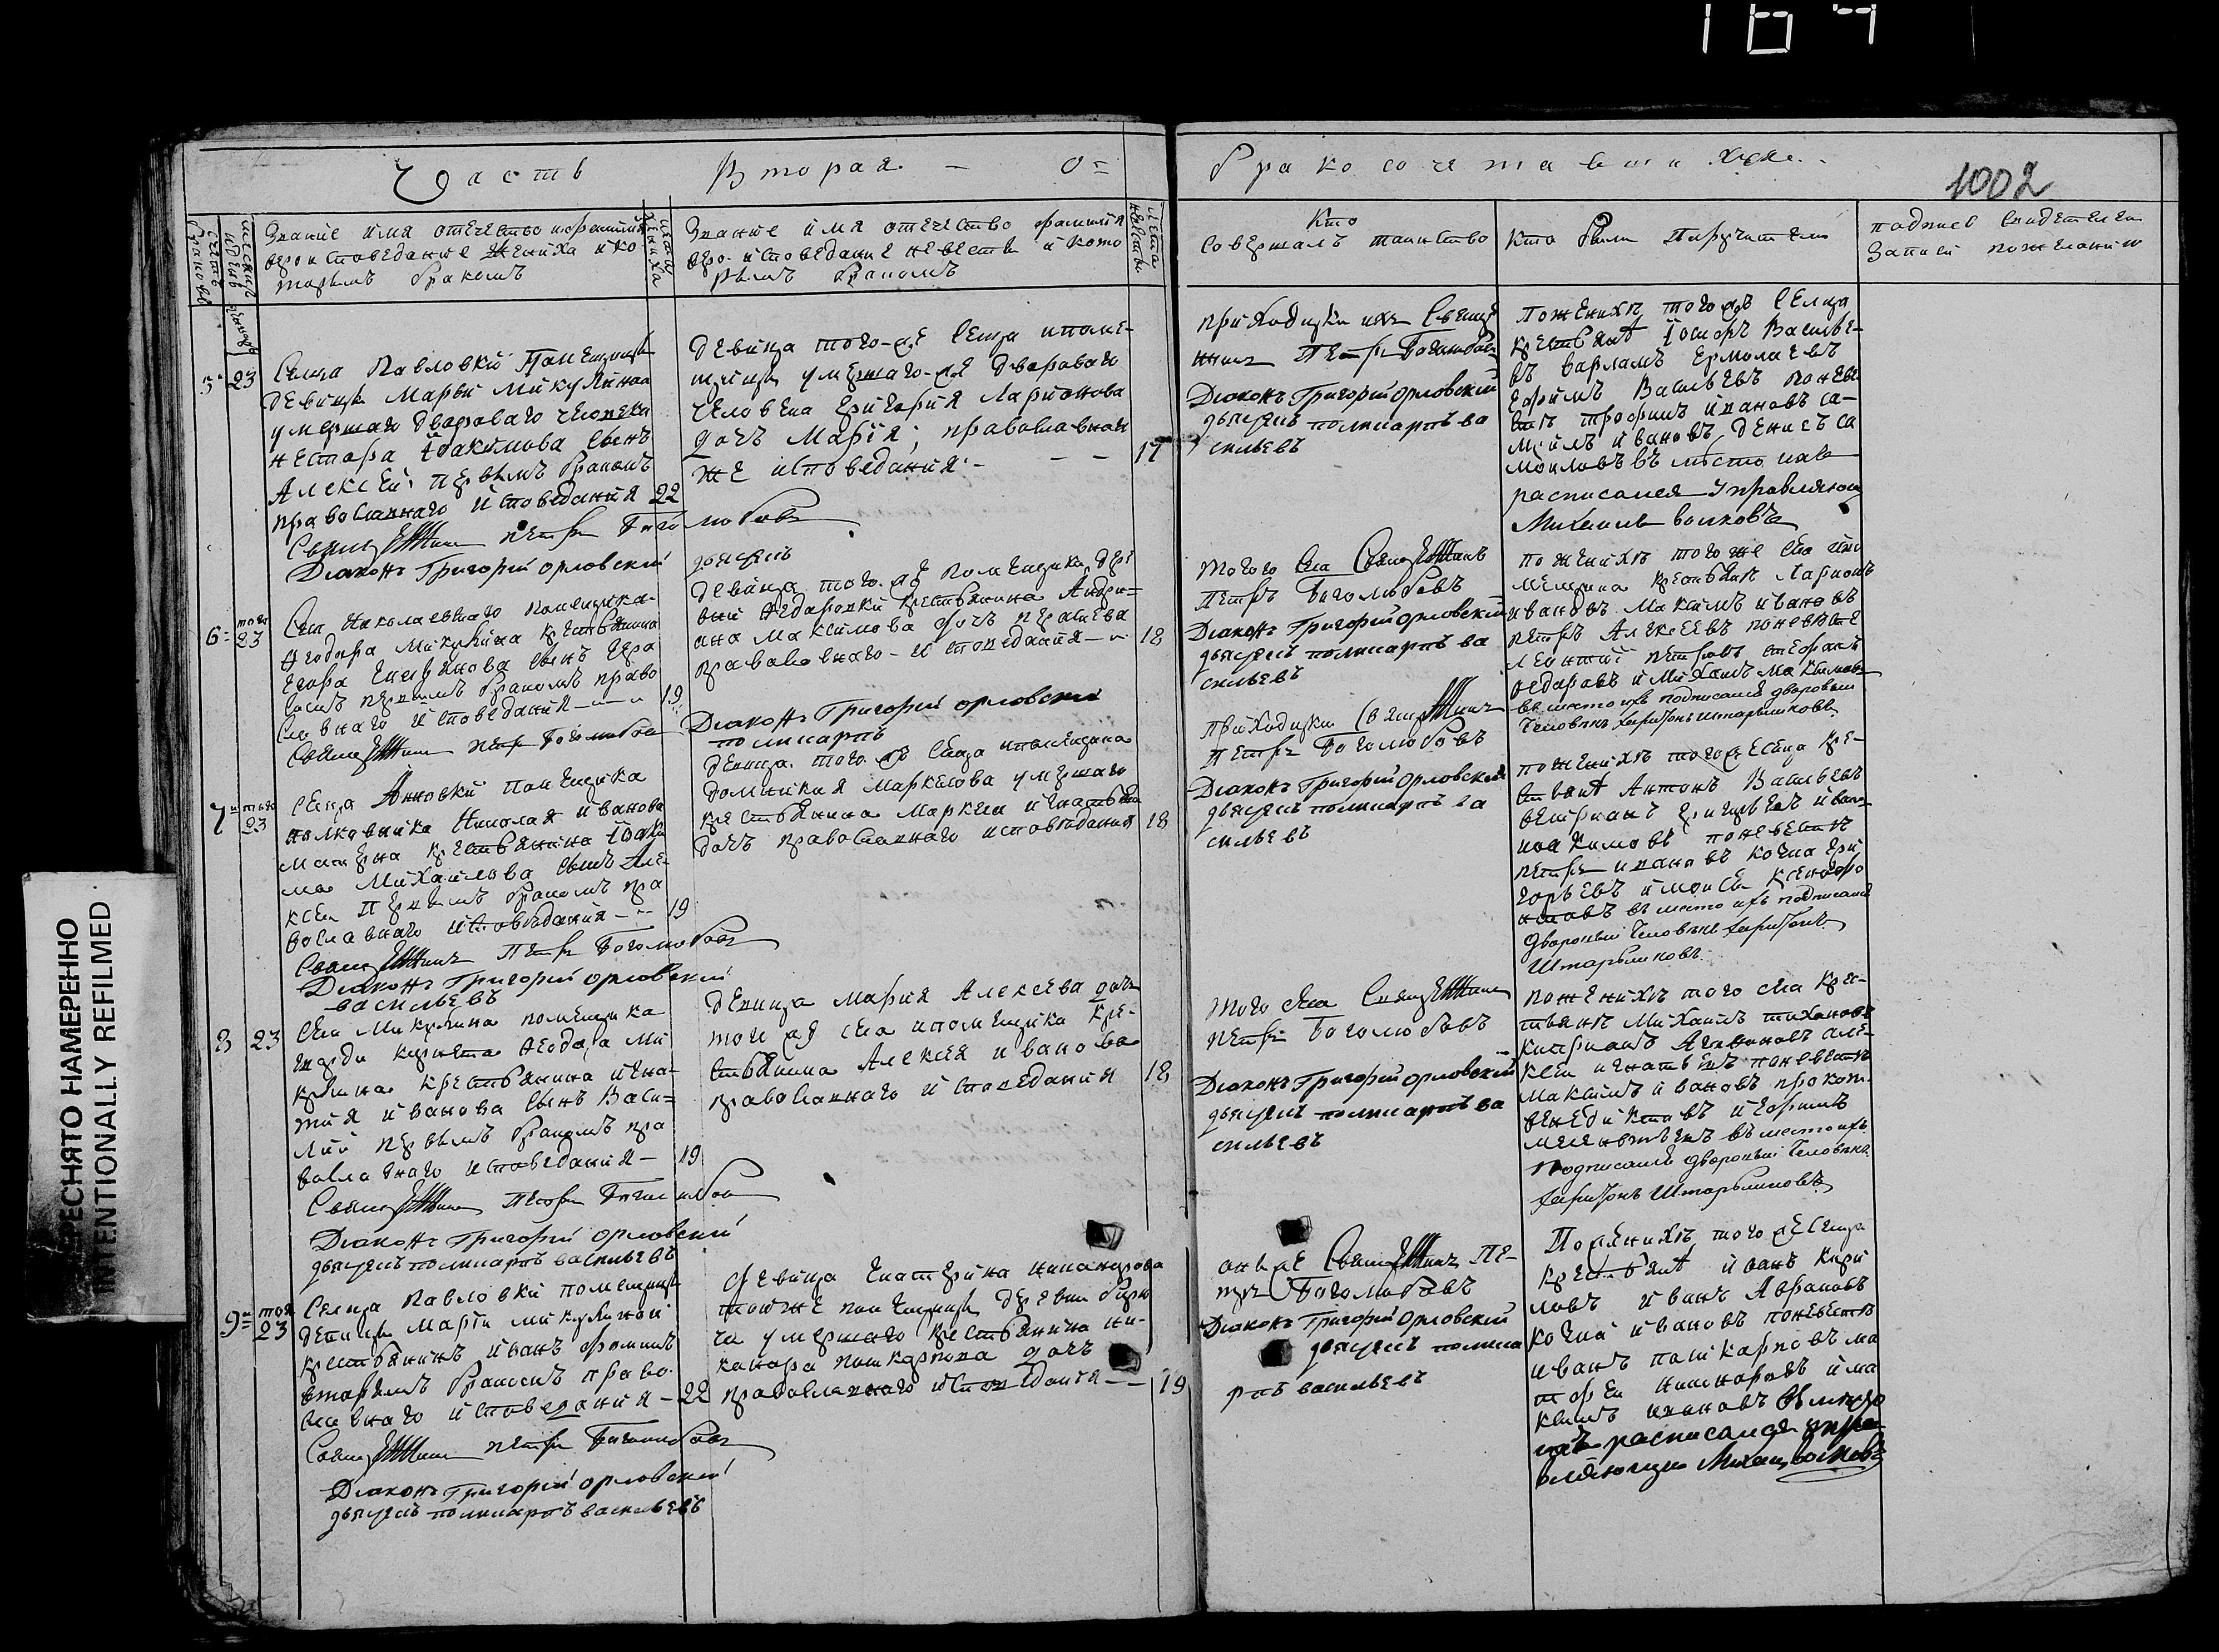 1002
Часть Вторая - о=
бракосочетавшихся.
Звание имя отечество и фамилия
вероисповедание жениха и ко
торымъ бракомъ
лета жениха
Звание имя отечество фамилия
веро-исповедание невесты и кото
рымъ бракомъ
лета невесты
Кто
совершалъ таинство
Кто были Поручители
подпись свидетелей
Записи по желанию
5 23
Селца Павловки Помещицы
девицы Марьи Микулиной
умершаго двороваго человека
нестора иоакимова сынъ
Алексей первымъ бракомъ
православнаго исповедания 22
Священникъ петръ Боголюбовъ
Диаконъ Григорий орловский
дьячекъ
девица того-же селца и поме-
щицы умершаго-же двороваго
человека григория Ларионова
дочь Мария, православнаго
же исповедания - - - 17
приходский ихъ Священ
никъ Петръ Боголюбовъ
Диаконъ Григорий орловский
дьячекъ поликарпъ ва
сильевъ
по женихе того же селца
крестьяне иосифъ Василье-
въ варламъ Ермолаевъ
ефимъ Васильевъ по неве
сте трофимъ ивановъ са-
мойлъ ивановъ, денисъ са
мойловъ въ место ихъ
расписался Управляющ
Михаилъ волковъ
6 = того 23
Села Николаевкаго помещика
Феодора Микулина крестьянина
Егора сынъ гера
симъ первымъ бракомъ право
славнаго исповедания - 19
Священникъ петръ Боголюбовъ
Диаконъ Григорий орловский
поликарпъ
девица того-же помещика дере
вни Федоровки крестьянина Андри=
ана Максимова дочь
православнаго - исповедания - 18
Тогого села Священникъ
Петръ Боголюбовъ
Диаконъ Григорий орловский
дьячекъ поликарпъ ва
сильевъ
по женихе того же села и по
мещика крестьяне Ларионъ
ивановъ Максимъ ивановъ
петръ Алексеевъ по невесте
леонтий петровъ стефанъ
федоровъ и Михаилъ Максимовъ
въ место ихъ подписался дворовый
Человекъ Харитонъ Штарышковъ
7 и того 23
селца Анновки помещика
полковника Николая иванова
крестьянина иоаки
ма Михайлова сынъ Але-
ксей Первымъ бракомъ пра
вославнаго исповедания - 19
Священникъ Петръ Боголюбовъ
Диаконъ Григорий орловский
васильевъ
девица того же селца и помещика
домникия Маркелова умершаго
крестьянина Маркела игнатьева
дочь православнаго исповедания 18
Приходский Священникъ
Петръ Боголюбовъ
Диаконъ Григорий орловский
дьячекъ поликарпъ ва
сильевъ
по женихе того же селца кре-
стьяне Антонъ Васильевъ
григорьевъ иванъ
иоакимовъ по невесте
петръ ивановъ козма гри
горьевъ и моисей ксенофо
нтовъ въ место ихъ подписался
дворовый Человекъ Харитонъ
Штарышковъ
8 23
Села Микулина помещика
гварди корнета Феодора Ми
кулина крестьянина игна-
тия иванова сынъ Васи=
лий первымъ бракомъ пра
вославнаго исповедания - 19
Священникъ Петръ Боголюбовъ
Диаконъ Григорий орловский
дьячекъ поликарпъ васильевъ
девица Мария Алексева дочь
того же села и помещика кре-
стьянина Алексея иванова
православнаго исповедания 18
Того села Священникъ
петръ Боголюбовъ
Диаконъ Григорий орловский
дьячекъ поликарпъ ва
сильевъ
по женихе того села кре-
стьяне Михаилъ тихоновъ
киприанъ Агафоновъ але-
ксей игнатьевъ по невесте
Максимъ ивановъ прокопи
венедиктовъ и ефимъ
въ место ихъ
Подписался дворовый Человекъ
Харитонъ Штарышковъ
9= того 23
Селца Павловки помещицы
девицы Марьи микулиной
крестьянинъ иванъ фоминъ
вторымъ бракомъ право-
славнаго исповедания - 22
Священникъ петръ Боголюбовъ
Диаконъ Григорий орловский
дьячекъ поликарпъ васильевъ
девица Екатерина никанорова
той же помещицы деревни
умершаго крестьянина ни-
канора поликарпова дочь
православнаго исповедания - - 19
онъ же Священникъ Пе-
тръ Боголюбовъ
Диаконъ Григорий Орловский
дьячекъ полика
рпъ васильевъ
По женихе того же селца
крестьяне иванъ кири
ловъ иванъ Аврамовъ
козма ивановъ по невесте
иванъ поликарповъ ма
тфей никаноровъ и ма
ксимъ ивановъ въ место
ихъ расписался упра
вляющий Михаилъ Волковъ
ПЕРЕСНЯТО НАМЕРЕННО
INTENTIONALLY REFILMED